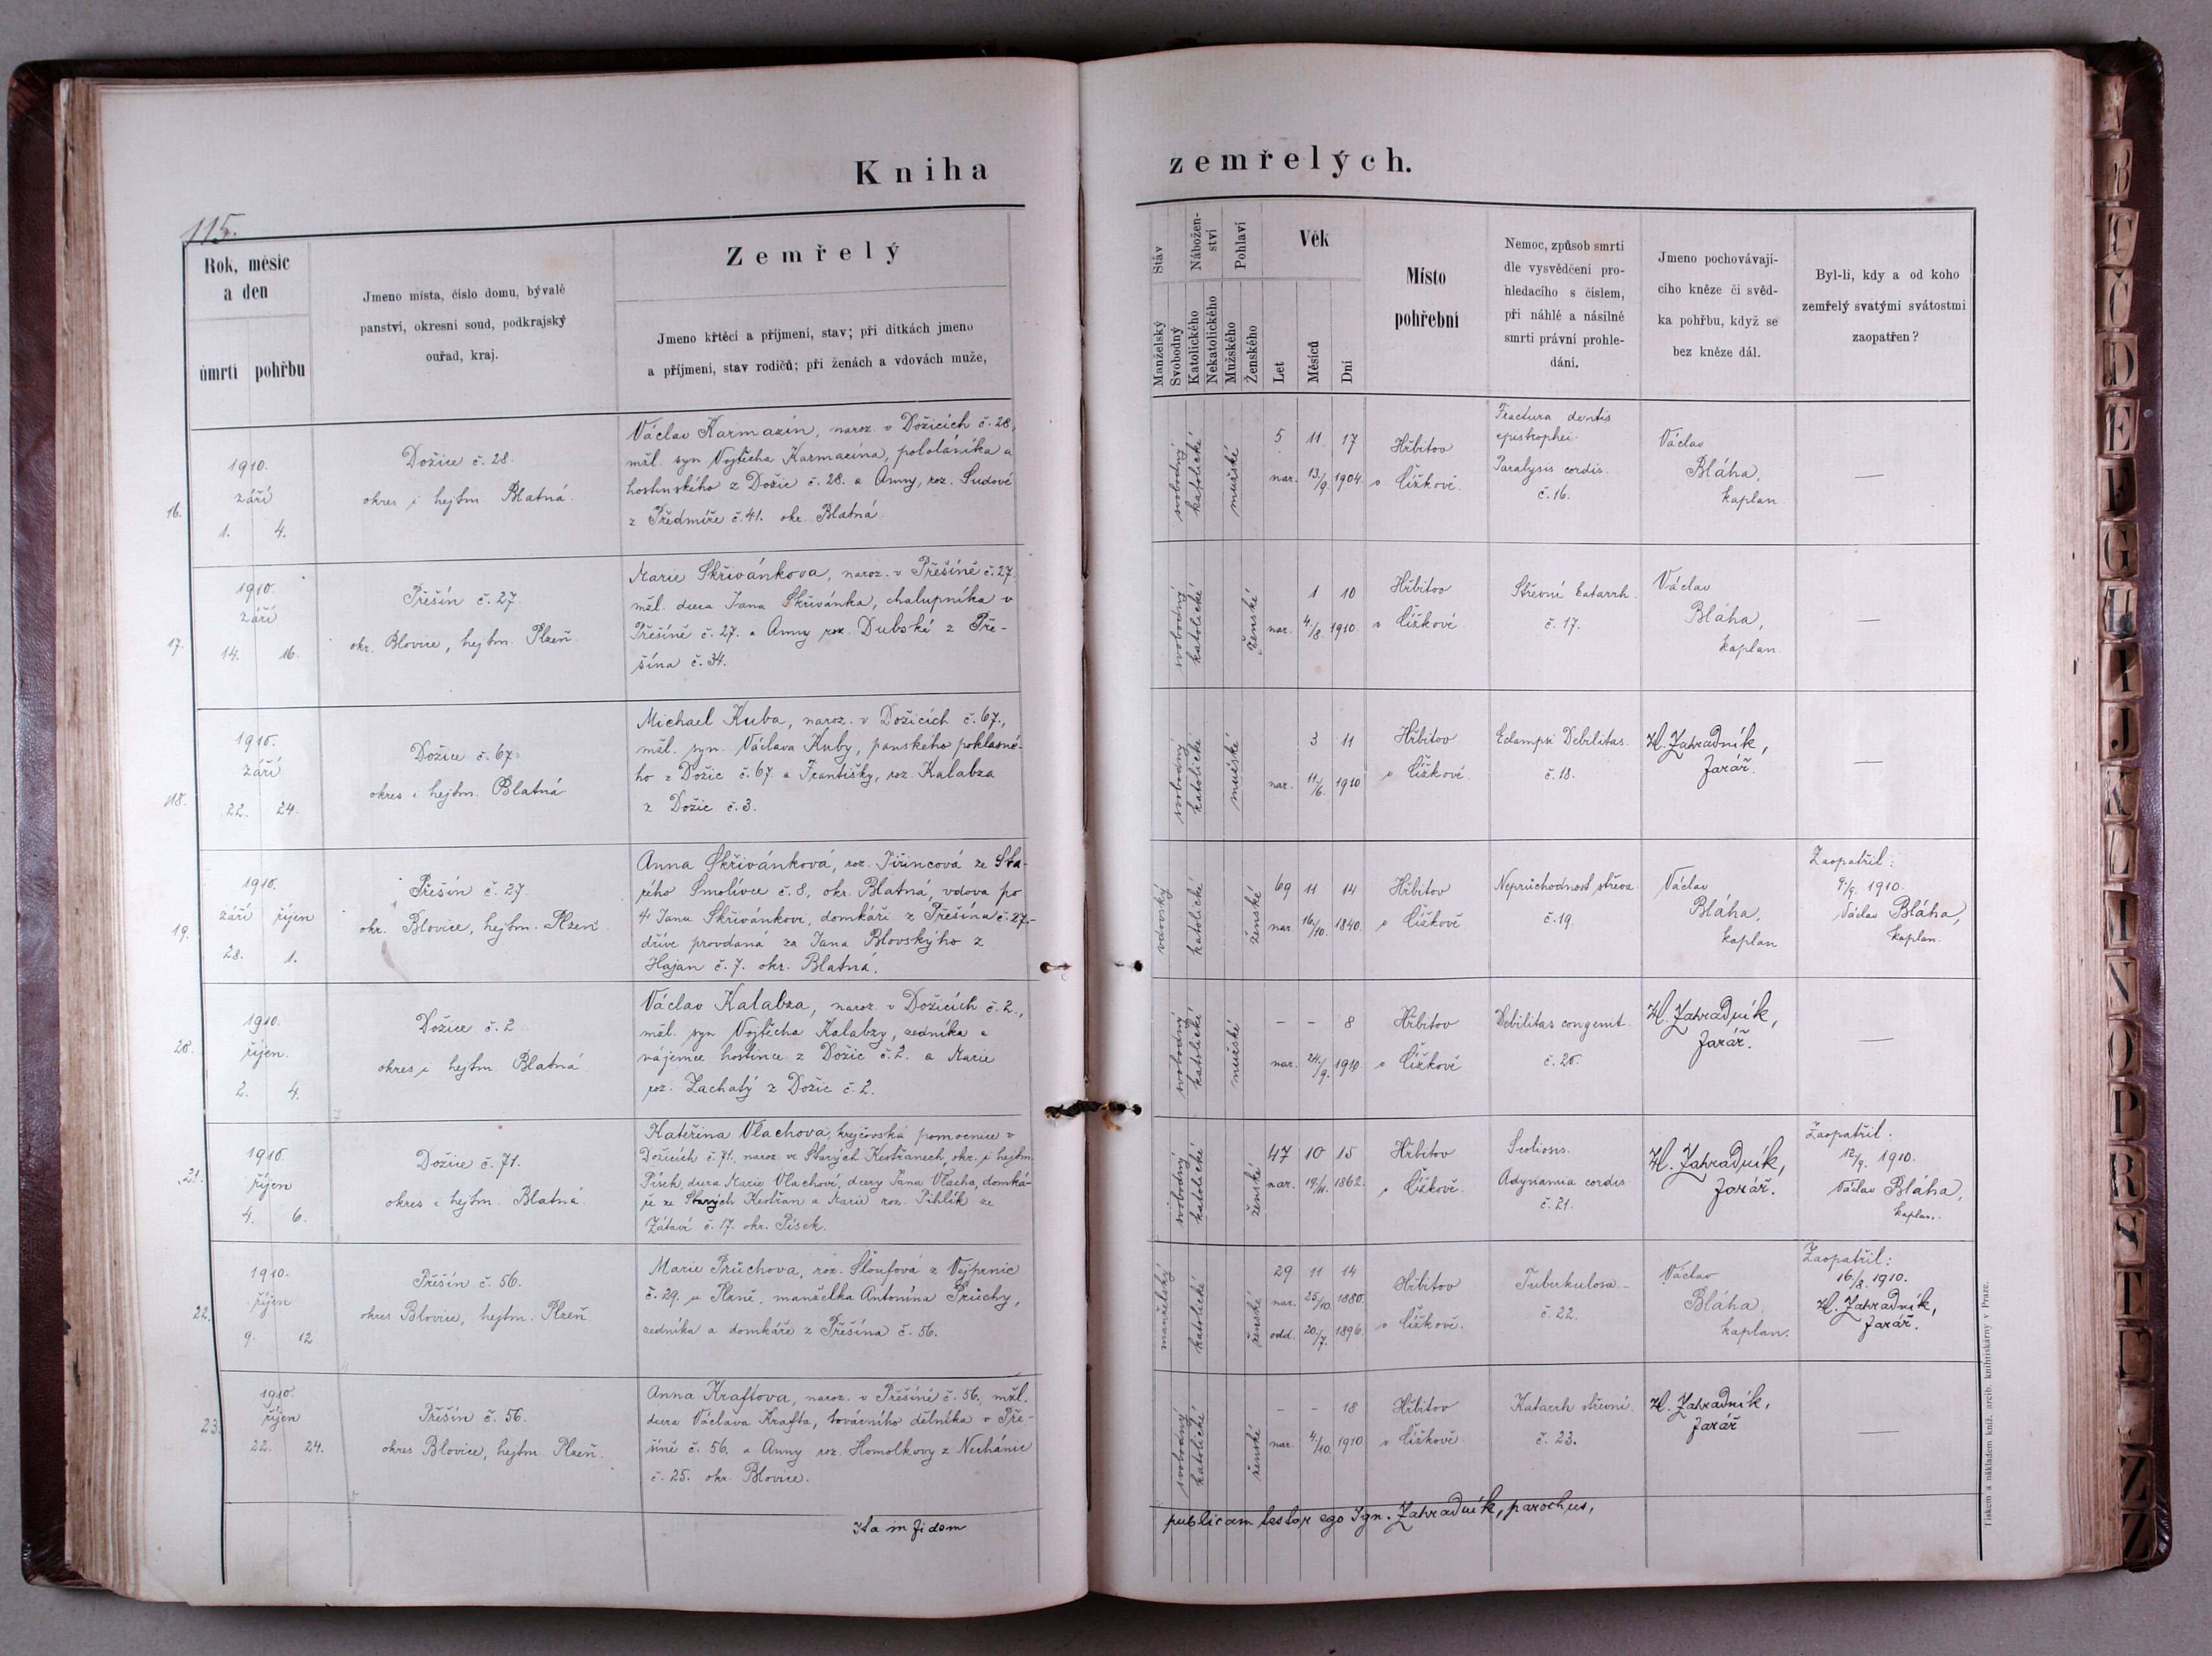 Kniha zemřelých.
115.
Rok, měsíc
a den
úmrtí pohřbu
Jmeno místa, číslo domu, bývalé
panství, okresní soud, podkrajský
ouřad, kraj.
Zemřelý
Jmeno křtěcí a příjmení, stav; při dítkách jmeno
a příjmení, stav rodičů; při ženách a vdovách muže,
Stav
Manželský
Svobodný
Nábožen-
ství
Katolického
Nekatolického
Pohlaví
Mužského
Ženského
Věk
Let
Měsíců
Dní
Místo
pohřební
Nemoc, způsob smrti
dle vysvědčení pro-
hledacího s číslem,
při náhlé a násilné
smrti právní prohle-
dání.
Jmeno pochovávají-
cího kněze či svěd-
ka pohřbu, když se
bez kněze dál.
Byl-li, kdy a od koho
zemřelý svatými svátostmi
zaopatřen?
16.
1910.
září
1. 4.
Dožice č. 28.
okres i hejtm. Blatná.
Václav Karmazín, naroz. v Dožicích č. 28,
mžl. syn Vojtěcha Karmazína, pololáníka a
hostinského z Dožic č. 28. a Anny, roz. Sudové
z Předmíře č. 41. okr. Blatná.
svobodný
katolické
mužské
5 11 17
nar. 13/9. 1904.
Hřbitov
v Čížkově.
Fractura dentis
epistrophei.
Paralysis cordis.
č. 16.
Václav
Bláha,
kaplan
—
17.
1910.
září
14. 16.
Přešín č. 27
okr. Blovice, hejtm. Plzeň
Marie Skřivánkova, naroz. v Přešíně č. 27.
mžl. dcera Jana Skřivánka, chalupníka v
Přešíně č. 27. a Anny roz. Dubské z Pře-
šína č. 34.
svobodný
katolické
ženské
1 10
nar. 4./8. 1910.
Hřbitov
v Čížkově.
Střevní katarrh.
č. 17.
Václav
Bláha,
kaplan.
—
18.
1910.
září
22. 24.
Dožice č. 67.
okres i hejtm. Blatná.
Michael Kuba, naroz. v Dožicích č. 67.,
mžl. syn. Václava Kuby, panského poklasné-
ho z Dožic č. 67. a Františky, roz. Kalabza
z Dožic č. 3.
svobodný
katolické
mužské
3 11
nar. 11./6. 1910
Hřbitov
v Čížkově.
Eclampsi Debilitas.
č. 18.
H. Zahradník,
farář.
—
19.
1910.
září říjen
28. 1.
Přešín č. 27.
okr. Blovice, hejtm. Plzeň
Anna Skřivánková, roz. Jiřincová ze Sta-
rého Smolivce č. 8, okr. Blatná, vdova po
Janu Skřivánkovi, domkáři z Přešína č. 27.-
dříve provdaná za Jana Blovského z
Hajan č. 7. okr. Blatná.
vdovský
katolické
ženské
69 11 14
nar. 16./10. 1840.
Hřbitov
v Čížkově
Neprůchodnost střeva.
č. 19.
Václav
Bláha,
kaplan
Zaopatřil:
9./9. 1910.
Václav Bláha,
kaplan.
20.
1910.
říjen.
2. 4.
Dožice č. 2.
okres i hejtm. Blatná
Václav Kalabza, naroz. v Dožicích č. 2.,
mžl. syn Vojtěcha Kalabzy, zedníka a
nájemce hostince z Dožic č. 2. a Marie
roz. Zachatý z Dožic č. 2.
svobodný
katolické
mužské
– – 8
nar. 24./9. 1910.
Hřbitov
v Čížkově
Debilitas congenit.
č. 20.
H. Zahradník,
farář.
—
21.
1910.
říjen
4. 6.
Dožice č. 71.
okres i hejtm. Blatná.
Kateřina Vlachova, krejčovská pomocnice v
Dožicích č. 71. naroz. ve Starých Kestřanech, okr. i hejtm.
Písek, dcera Marie Vlachové, dcery Jana Vlacha, domká-
ře ze Starých Kestřan a Marie roz. Pihlík ze
Zátaví č. 17. okr. Písek.
svobodný
katolické
ženské
47 10 15
nar. 19/11. 1862.
Hřbitov
v Čížkově.
Scoliosis.
Adynamia cordis
č. 21.
H. Zahradník,
farář.
Zaopatřil.
12/9. 1910.
Václav Bláha,
kaplan.
22.
1910.
říjen
9. 12
Přešín č. 56.
okres Blovice, hejtm. Plzeň
Marie Průchova, roz. Šloufová z Vejprnic
č. 29. u Plzně, manželka Antonína Průchy,
zedníka a domkáře z Přešína č. 56.
manželský
katolické
ženské
29 11 14
nar. 25/10. 1880.
odd. 20./7. 1896.
Hřbitov
v Čížkově.
Tuberkulosa.-
č. 22.
Václav
Bláha,
kaplan.
Zaopatřil:
16/8. 1910.
H. Zahradník,
farář.
23.
1910.
říjen
22. 24.
Přešín č. 56.
okres Blovice, hejtm. Plzeň.
Anna Kraftova, naroz. v Přešíně č. 56., mžl.
dcera Václava Krafta, továrního dělníka v Pře-
šíně č. 56. a Anny roz. Homolkovy z Nechánic
č. 25. okr. Blovice.
svobodný
katolické
ženské
– – 18
nar. 4./10. 1910
Hřbitov
v Čížkově.
Katarrh střevní.
č. 23.
H. Zahradník,
farář
—
Ita in fidem publicam testor ego Ign. Zahradník, parochus,
Tiskem a nákladem kníž. arcib. knihtiskárny v Praze.
B C Č D E F G H I J K L M N O P R S T U Z Ž